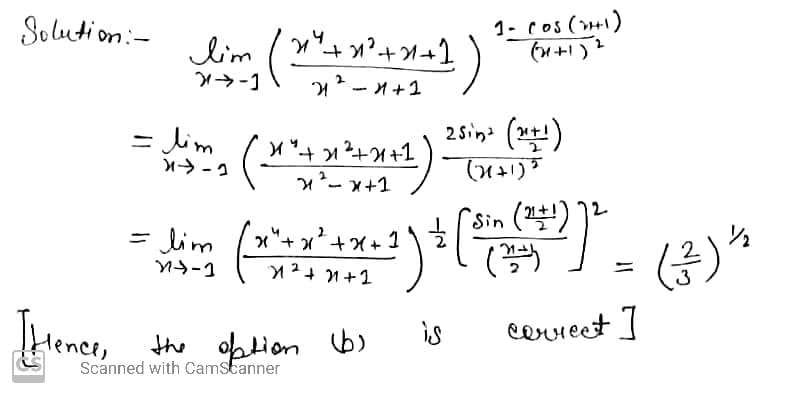 Solution:-
lim x→-1 ( x⁴+x²+x+1 / x²-x+1 ) ^ 1-cos(x+1) / (x+1)²
= lim x→-1 ( x⁴+x²+x+1 / x²-x+1 ) ^ 2sin² (x+1 / 2) / (x+1)²
= lim x→-1 ( x⁴+x²+x+1 / x²+x+1 ) ^ 1/2 [ sin (x+1 / 2) / (x+1 / 2) ]² = (2/3)^1/2
[Hence, the option (b) is correct]
CS Scanned with CamScanner